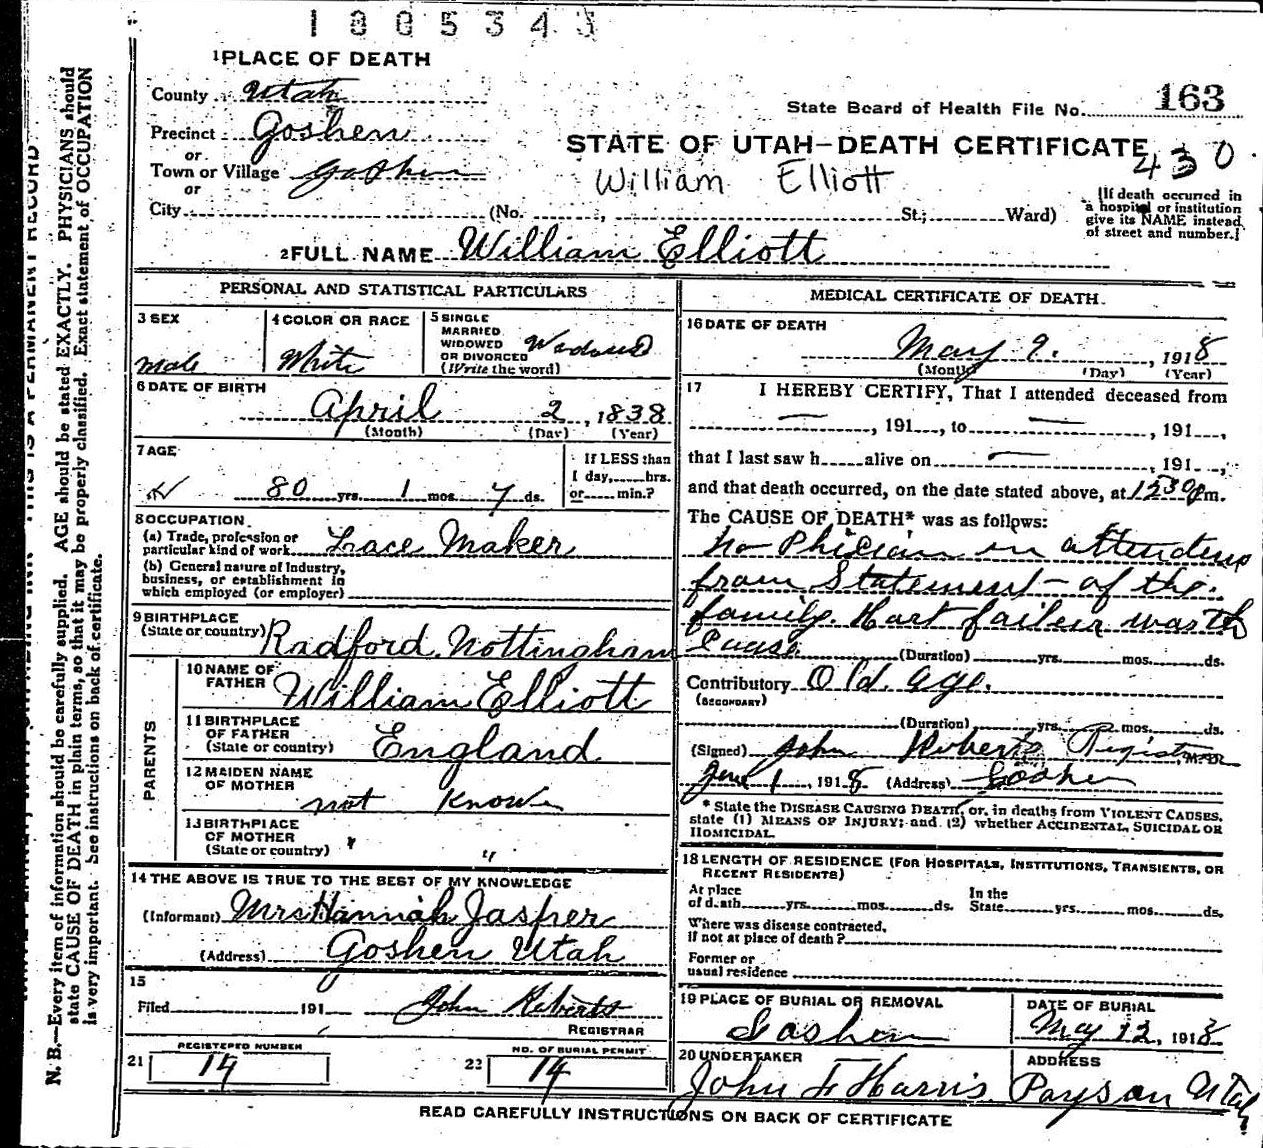 1805343
1 PLACE OF DEATH
County Utah
State Board of Health File No. 163
Precinct Goshen
STATE OF UTAH—DEATH CERTIFICATE
430
or
Town or Village Goshen
William Elliott
or
City (No. , St.; Ward)
[If death occurred in a hospital or institution give its NAME instead of street and number.]
2 FULL NAME William Elliott
PERSONAL AND STATISTICAL PARTICULARS
3 SEX
Male
4 COLOR OR RACE
White
5 SINGLE
MARRIED
WIDOWED
OR DIVORCED
(Write the word)
Widowed
6 DATE OF BIRTH
April 2, 1838
(Month) (Day) (Year)
7 AGE
80 yrs. 1 mos. 7 ds.
If LESS than
1 day, hrs.
or min.?
8 OCCUPATION
(a) Trade, profession or
particular kind of work Lace Maker
(b) General nature of Industry,
business, or establishment in
which employed (or employer)
9 BIRTHPLACE
(State or country) Radford, Nottingham
PARENTS
10 NAME OF
FATHER William Elliott
11 BIRTHPLACE
OF FATHER
(State or country) England
12 MAIDEN NAME
OF MOTHER not Know
13 BIRTHPLACE
OF MOTHER
(State or country) " "
14 THE ABOVE IS TRUE TO THE BEST OF MY KNOWLEDGE
(Informant) Mrs Hannah Jasper
(Address) Goshen Utah
15
Filed 191 John Roberts
REGISTRAR
21 REGISTERED NUMBER
14
22 NO. OF BURIAL PERMIT
14
MEDICAL CERTIFICATE OF DEATH.
16 DATE OF DEATH
May 9. , 1918
(Month) (Day) (Year)
17 I HEREBY CERTIFY, That I attended deceased from
— , 191 , to — , 191 ,
that I last saw h alive on — , 191 ,
and that death occurred, on the date stated above, at 1230 Pm.
The CAUSE OF DEATH* was as follows:
No Phician in attendens
from Statement of the
family. Hart failur was th
Cause.
(Duration) yrs. mos. ds.
Contributory Old age.
(SECONDARY)
(Duration) yrs. mos. ds.
(Signed) John Roberts Registrar M.D.
June 1, 1918 (Address) Goshen
* State the DISEASE CAUSING DEATH, or, in deaths from VIOLENT CAUSES,
state (1) MEANS OF INJURY; and (2) whether ACCIDENTAL, SUICIDAL OR
HOMICIDAL
18 LENGTH OF RESIDENCE (FOR HOSPITALS, INSTITUTIONS, TRANSIENTS, OR
RECENT RESIDENTS)
At place
of death yrs. mos. ds.
In the
State yrs. mos. ds.
Where was disease contracted,
if not at place of death?
Former or
usual residence
19 PLACE OF BURIAL OR REMOVAL
Goshen
DATE OF BURIAL
May 12, 1918
20 UNDERTAKER
John F Harris
ADDRESS
Payson Utah
READ CAREFULLY INSTRUCTIONS ON BACK OF CERTIFICATE
THIS IS A PERMANENT RECORD
N. B.—Every item of information should be carefully supplied. AGE should be stated EXACTLY. PHYSICIANS should
state CAUSE OF DEATH in plain terms, so that it may be properly classified. Exact statement of OCCUPATION
is very important. See instructions on back of certificate.